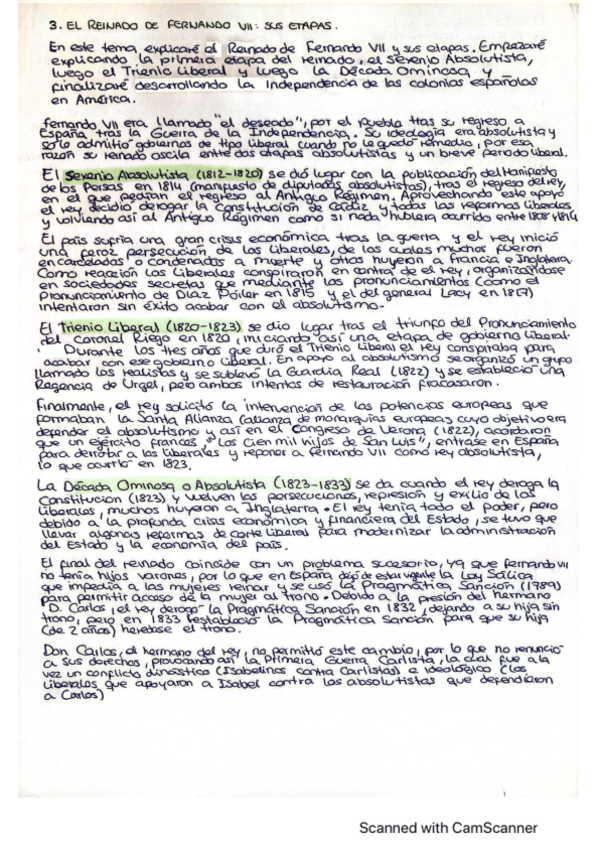 3. EL REINADO DE FERNANDO VII: SUS ETAPAS.
En este tema, explicaré el Reinado de Fernando VII y sus etapas. Empezaré
explicando la primera etapa del reinado, el Sexenio Absolutista,
luego el Trienio Liberal y luego la Década Ominosa y
finalizaré desarrollando la Independencia de las colonias españolas
en América.
Fernando VII era llamado "el deseado", por el pueblo tras su regreso a
España tras la Guerra de la Independencia. Su ideología era absolutista y
solo admitió gobiernos de tipo liberal cuando no le quedó remedio, por esa
razón su reinado oscila entre dos etapas absolutistas y un breve periodo liberal.
El Sexenio Absolutista (1812-1820) se dió lugar con la publicación del Manifiesto
de los Persas en 1814 (manifiesto de diputados absolutistas), tras el regreso del rey,
en el que pedían el regreso al Antiguo Régimen. Aprovechando este apoyo
el rey decidió derogar la Constitución de Cádiz y todas las reformas liberales
y volviendo así al Antiguo Régimen como si nada hubiera ocurrido entre 1808 y 1814
El país sufría una gran crisis económica tras la guerra y el rey inició
una feroz persecución de los liberales, de los cuales muchos fueron
encarcelados o condenados a muerte y otros huyeron a Francia e Inglaterra.
Como reacción los liberales conspiraron en contra de el rey, organizándose
en sociedades secretas que mediante los pronunciamientos (como el
Pronunciamiento de Díaz Pólier en 1815 y el del general Lacy en 1817)
intentaron sin éxito acabar con el absolutismo.
El Trienio Liberal (1820-1823) se dio lugar tras el triunfo del Pronunciamiento
del Coronel Riego en 1820, iniciando así una etapa de gobierno liberal.
Durante los tres años que duró el Trienio Liberal el rey conspiraba para
acabar con ese gobierno liberal. En apoyo al absolutismo se organizó un grupo
llamado los realistas y se sublevó la Guardia Real (1822) y se estableció una
Regencia de Urgel, pero ambos intentos de restauración fracasaron.
Finalmente, el rey solicitó la intervención de las potencias europeas que
formaban la Santa Alianza (alianza de monarquías europeas cuyo objetivo era
defender el absolutismo y así en el Congreso de Verona (1822), acordaron
que un ejército francés "Los Cien mil hijos de San Luis", entrase en España
para derrotar a los liberales y reponer a Fernando VII como rey absolutista,
lo que ocurrió en 1823.
La Década Ominosa o Absolutista (1823-1833) se da cuando el rey deroga la
Constitución (1823) y vuelven las persecuciones, represión y exilio de los
liberales, muchos huyeron a Inglaterra. El rey tenía todo el poder, pero
debido a la profunda crisis económica y financiera del Estado, se tuvo que
llevar algunas reformas de corte liberal para modernizar la administración
del Estado y la economía del país.
El final del reinado coincide con un problema sucesorio, ya que Fernando VII
no tenía hijos varones, por lo que en España dejó de estar vigente la Ley Sálica
que impedía a las mujeres reinar y se usó la Pragmática Sanción (1789)
para permitir acceso de la mujer al trono. Debido a la presión del hermano
D. Carlos, el rey derogó la Pragmática Sanción en 1832, dejando a su hija sin
trono, pero en 1833 restableció la Pragmática Sanción para que su hija
(de 2 años) heredase el trono.
Don Carlos, el hermano del rey, no permitió este cambio, por lo que no renunció
a sus derechos, provocando así la Primera Guerra Carlista, la cual fue a la
vez un conflicto dinástico (Isabelinos contra Carlistas) e ideológico (los
liberales que apoyaron a Isabel contra los absolutistas que defendieron
a Carlos)
Scanned with CamScanner